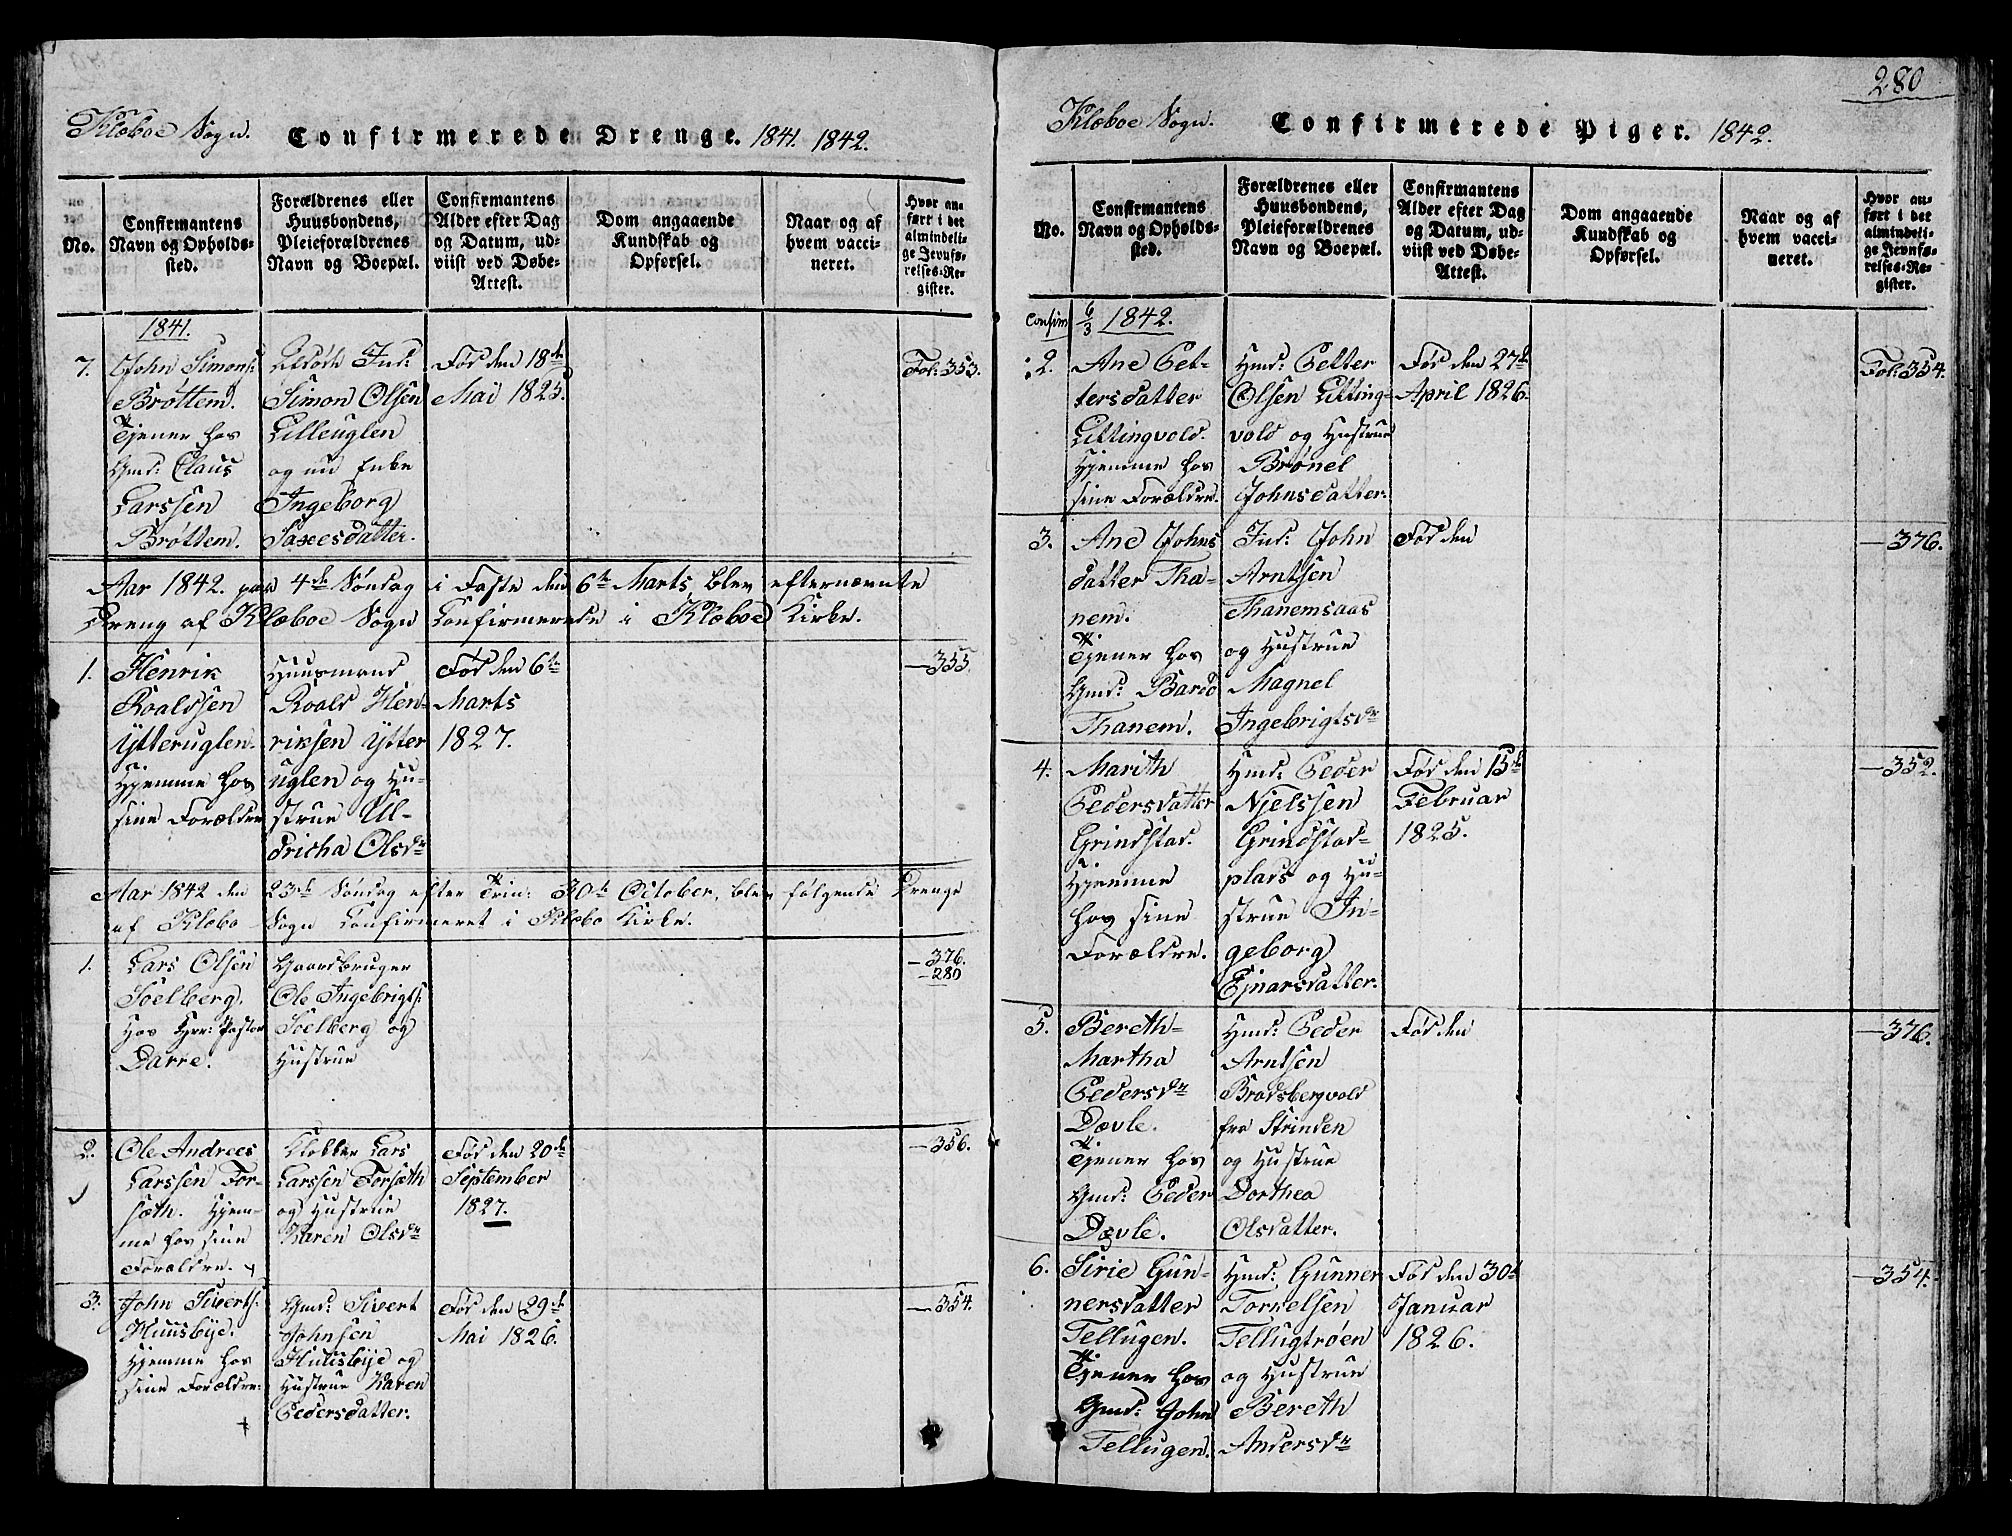 Klæboe Sogn. Confirmerede Drenge. 1841. 1842.
No.
Confirmantens
Navn og Opholds-
sted.
Forældrenes eller
Huusbondens,
Pleieforældrenes
Navn og Boepæl.
Confirmantens
Alder efter Dag
og Datum, ud-
viist ved Døbe-
Attest.
Dom angaaende
Kundskab og
Opførsel.
Naar og af
hvem vacci-
neret.
Hvor an-
ført i det
almindeli-
ge Jevnfø-
relses-Re-
gister.
1841.
7.
John Simons:
Brøttem.
Tjener hos
Gmd: Claus
Larssen
Brøttem.
Ind:
Simon Olsen
Lilleuglen
og nu Enke
Ingeborg
Saxesdatter.
Fød den 18de
Mai 1825.
Fol: 353.
Aar 1842. paa 4de Søndag i Faste den 6te Marts, blev efternævnte
Dreng af Klæboe Sogn Confirmerede i Klæboe Kirke.
1.
Henrik
Roaldsen
Ytteruglen.
Hjemme hos
sine Forældre
Huusmand
Roald Hen-
riksen Ytter
uglen og Hu-
strue Ul-
dricha Olsdr
Fød den 6te
Marts
1827.
— 355.
Aar 1842 den 23de Søndag efter Trin: 30te October, blev følgende Drenge
af Klæbo Sogn Confirmeret i Klæbo Kirke.
1.
Lars Olsen
Soelberg.
Hos Hrr: Pastor
Darre.
Gaardbruger
Ole Ingebrigts:
Soelberg og
Hustrue
— 376.
— 280
2.
Ole Andreas
Larssen For-
sæth. Hjem-
me hos sine
Forældre.
Klokker Lars
Larssen Forsæth
og Hustrue
Karen Olsdr
Fød den 20de
September
1827.
— 356.
3.
John Siverts:
Huusbye.
Hjemme hos
sine Forældre.
Gmd: Sivert
Johnsen
Huusbye og
Hustrue Karen
Pedersdatter.
Fød den 29de
Mai 1826.
— 354.
280
Klæboe Sogn. Confirmerede Piger. 1842.
No.
Confirmantens
Navn og Opholds-
sted.
Forældrenes eller
Huusbondens,
Pleieforældrenes
Navn og Boepæl.
Confirmantens
Alder efter Dag
og Datum, ud-
viist ved Døbe-
Attest.
Dom angaaende
Kundskab og
Opførsel.
Naar og af
hvem vacci-
neret.
Hvor an-
ført i det
almindeli-
ge Jevnfø-
relses-Re-
gister.
Confirm 6/3 1842.
2.
Ane Pet-
tersdatter
Littingvold.
Hjemme hos
sine Forældre.
Hmd: Petter
Olsen Litting-
vold og Hustrue
Brønel
Johnsdatter.
Fød den 27de
April 1826.
Fol: 354.
3.
Ane Johns
datter Tha-
nem.
Tjener hos
Gmd: Bard
Thanem.
Ind: John
Arntsen
Thanemsaas
og Hustrue
Magnel
Ingebrigtsdr
Fød den
— 376.
4.
Marith
Pedersdatter
Grindstad.
Hjemme
hos sine
Forældre.
Hmd: Peder
Njelssen
Grindstad-
plads og Hu-
strue In-
geborg
Ejnarsdatter.
Fød den 15de
Februar
1825.
— 352.
5.
Bereth-
Martha
Pedersdr
Dævle.
Tjener hos
Gmd: Peder
Dævle.
Hmd: Peder
Arntsen
Bradsbergvold
fra Strinden
og Hustrue
Dorthea
Olsdatter.
Fød den
— 376.
6.
Sirie Gun-
nersdatter
Tellugen.
Tjener hos
Gmd: John
Tellugen.
Hmd: Gunner
Torkelsen
Tellugtrøen
og Hustrue
Bereth
Andersdr
Fød den 30te
Januar
1826.
— 354.